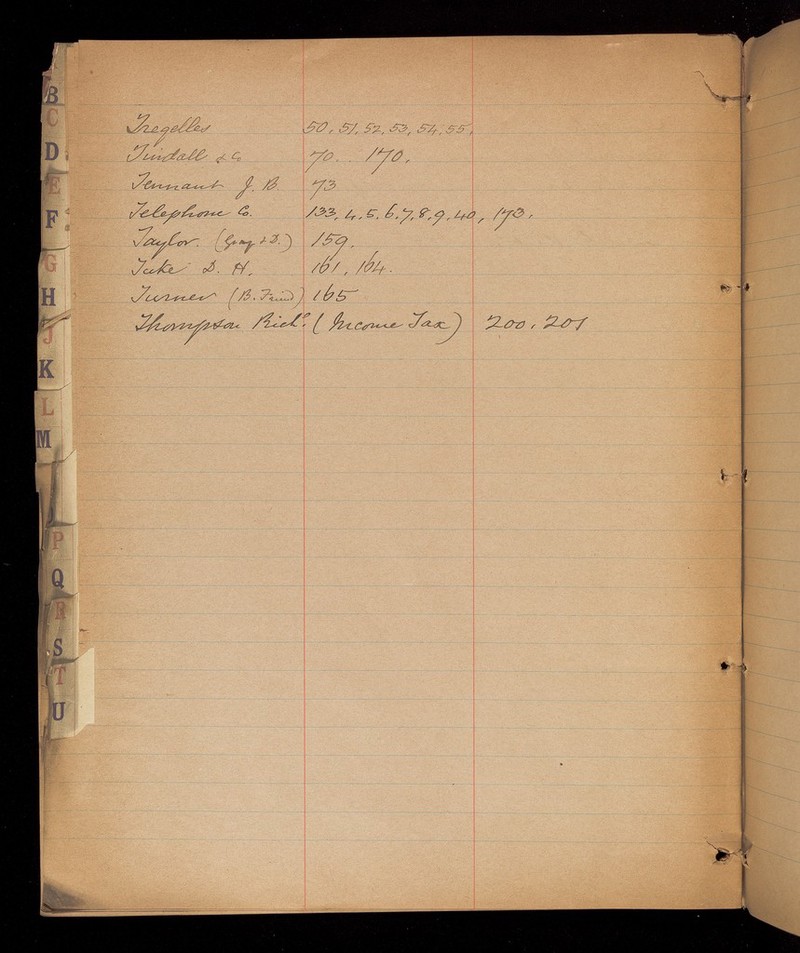 B
C
D
E
F
G
H
J
K
L
M
P
Q
R
S
T
U
Tregelles 50, 51, 52, 53, 54, 55,
Tindall & Co 70. . 170.
Tennant J. B. 73
Telephone Co. 133, 4, 5, 6, 7, 8, 9, 40, 173.
Taylor. (Gray & D.) 159.
Tuke D. H. 161, 164.
Turner (B. Friend) 165
Thompson Richd. (Income Tax) 200, 201